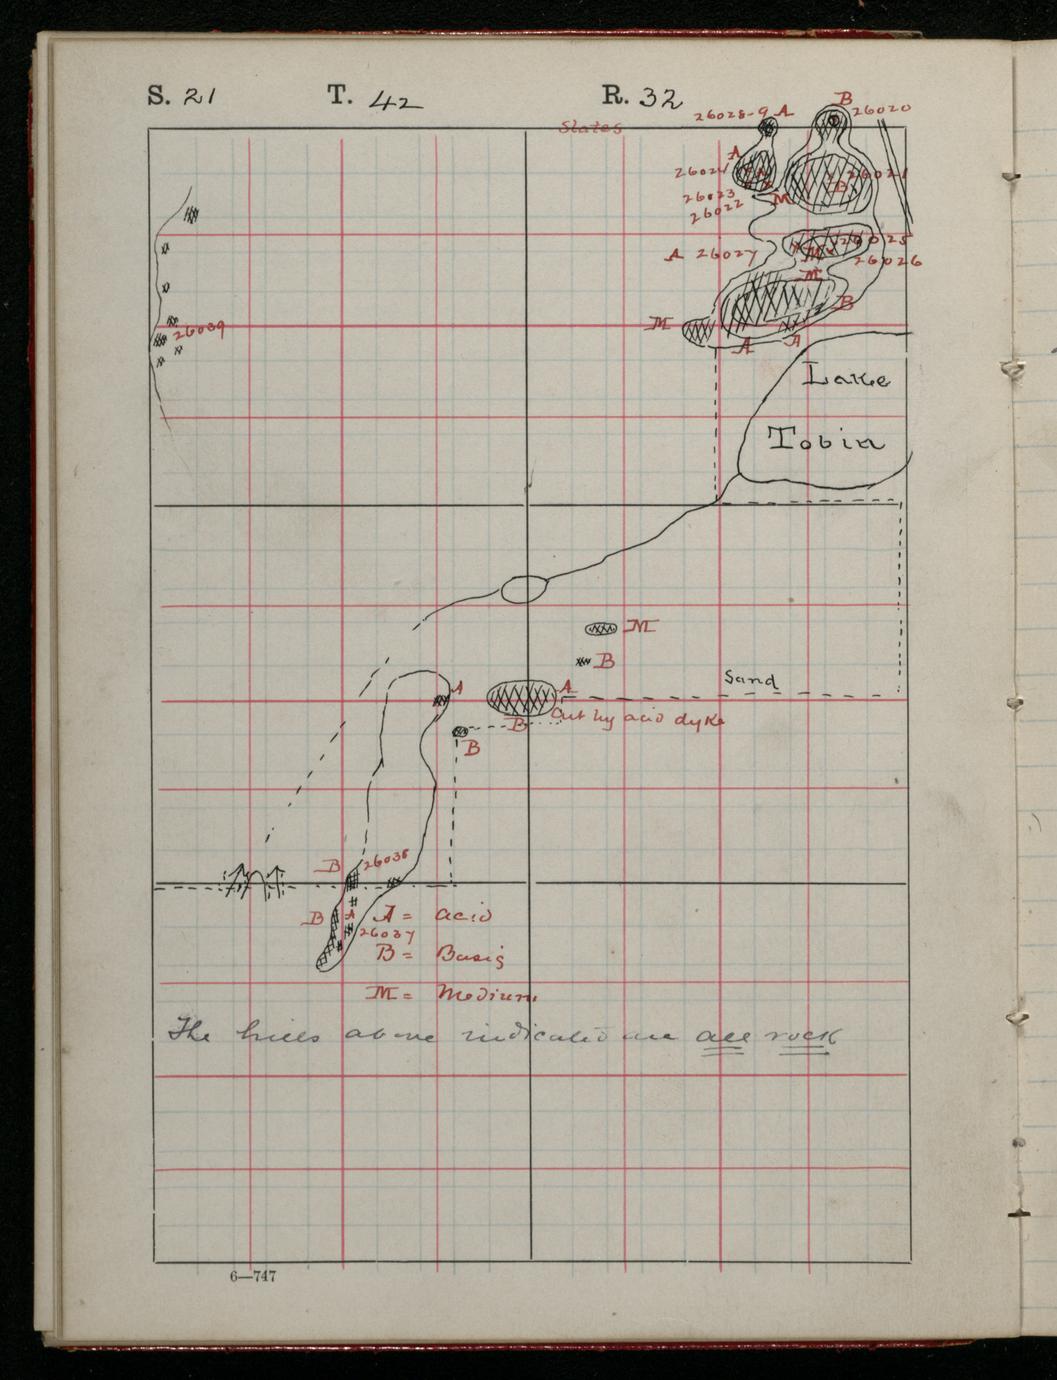 S. 21 T. 42 R. 32
Slates
26028-9 A
B
26020
A
26024
26023
26022
M
B
26021
A 26027
26025
M
26026
M
B
M
A
A
26039
Lake
Tobin
M
B
Sand
A
A
B
Cut by acid dyke
B
B
26038
B
A
26037
A = acid
B = Basic
M = Medium
The hills above indicated are all rock
6—747